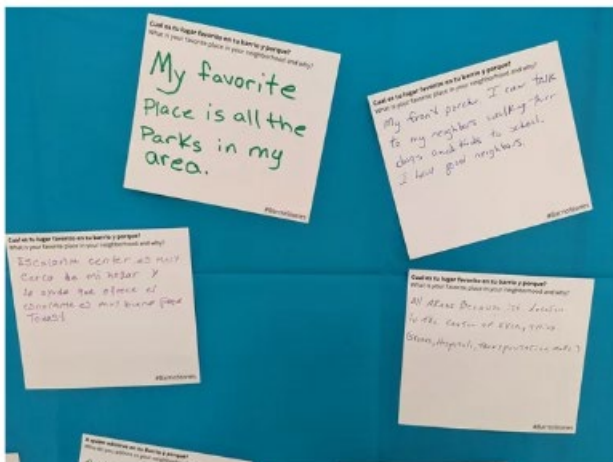 Cual es tu lugar favorito en tu barrio y porque?
What is your favorite place in your neighborhood and why?
My favorite
Place is all the
Parks in my
area.
#BarrioStories
Cual es tu lugar favorito en tu barrio y porque?
What is your favorite place in your neighborhood and why?
My front porch. I can talk
to my neighbors walking their
dogs and kids to school.
I have good neighbors.
#BarrioStories
Cual es tu lugar favorito en tu barrio y porque?
What is your favorite place in your neighborhood and why?
Escalante center es muy
cerca de mi hogar y
la ayuda que ofrece el
es muy buena para
Todos!
#BarrioStories
Cual es tu lugar favorito en tu barrio y porque?
What is your favorite place in your neighborhood and why?
All Areas Because its location
in the center of
Hospitals, Transportation
#BarrioStories
A quien admiras en tu Barrio y porque?
Who do you admire in your